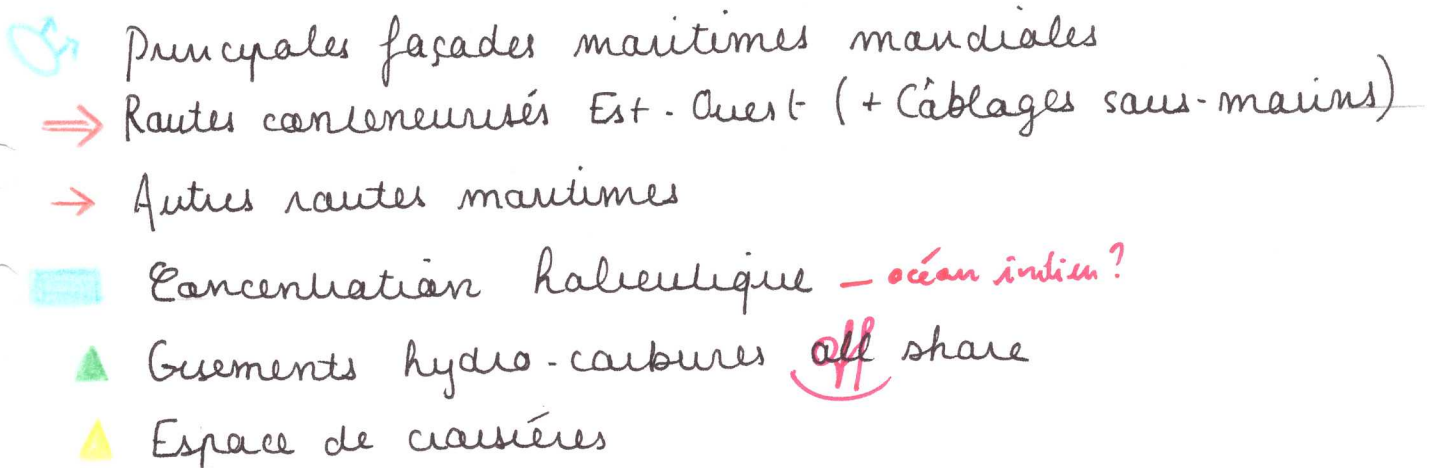 Principales façades maritimes mondiales
Routes conteneurisés Est-Ouest (+ Câblages sous-marins)
Autres routes maritimes
Concentration halieutique – océan indien ?
Gisements hydro-carbures off shore
Espace de croisiéres